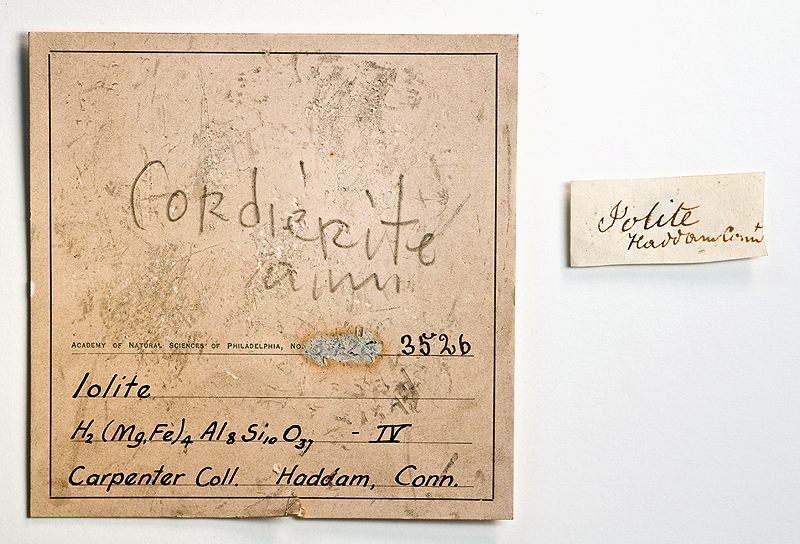 Cordiérite
ACADEMY OF NATURAL SCIENCES OF PHILADELPHIA, NO. 3526
Iolite
H₂(Mg,Fe)₄Al₈Si₁₀O₃₇ - IV
Carpenter Coll. Haddam, Conn.
Iolite
Haddam Connt